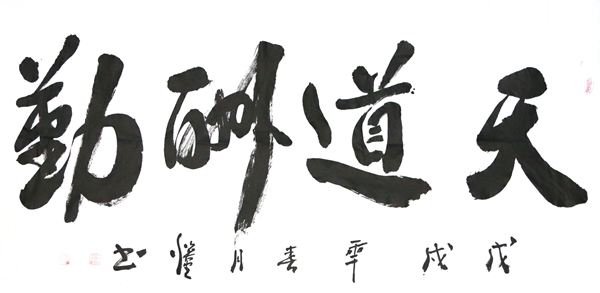 天道酬勤
戊戌年春月书